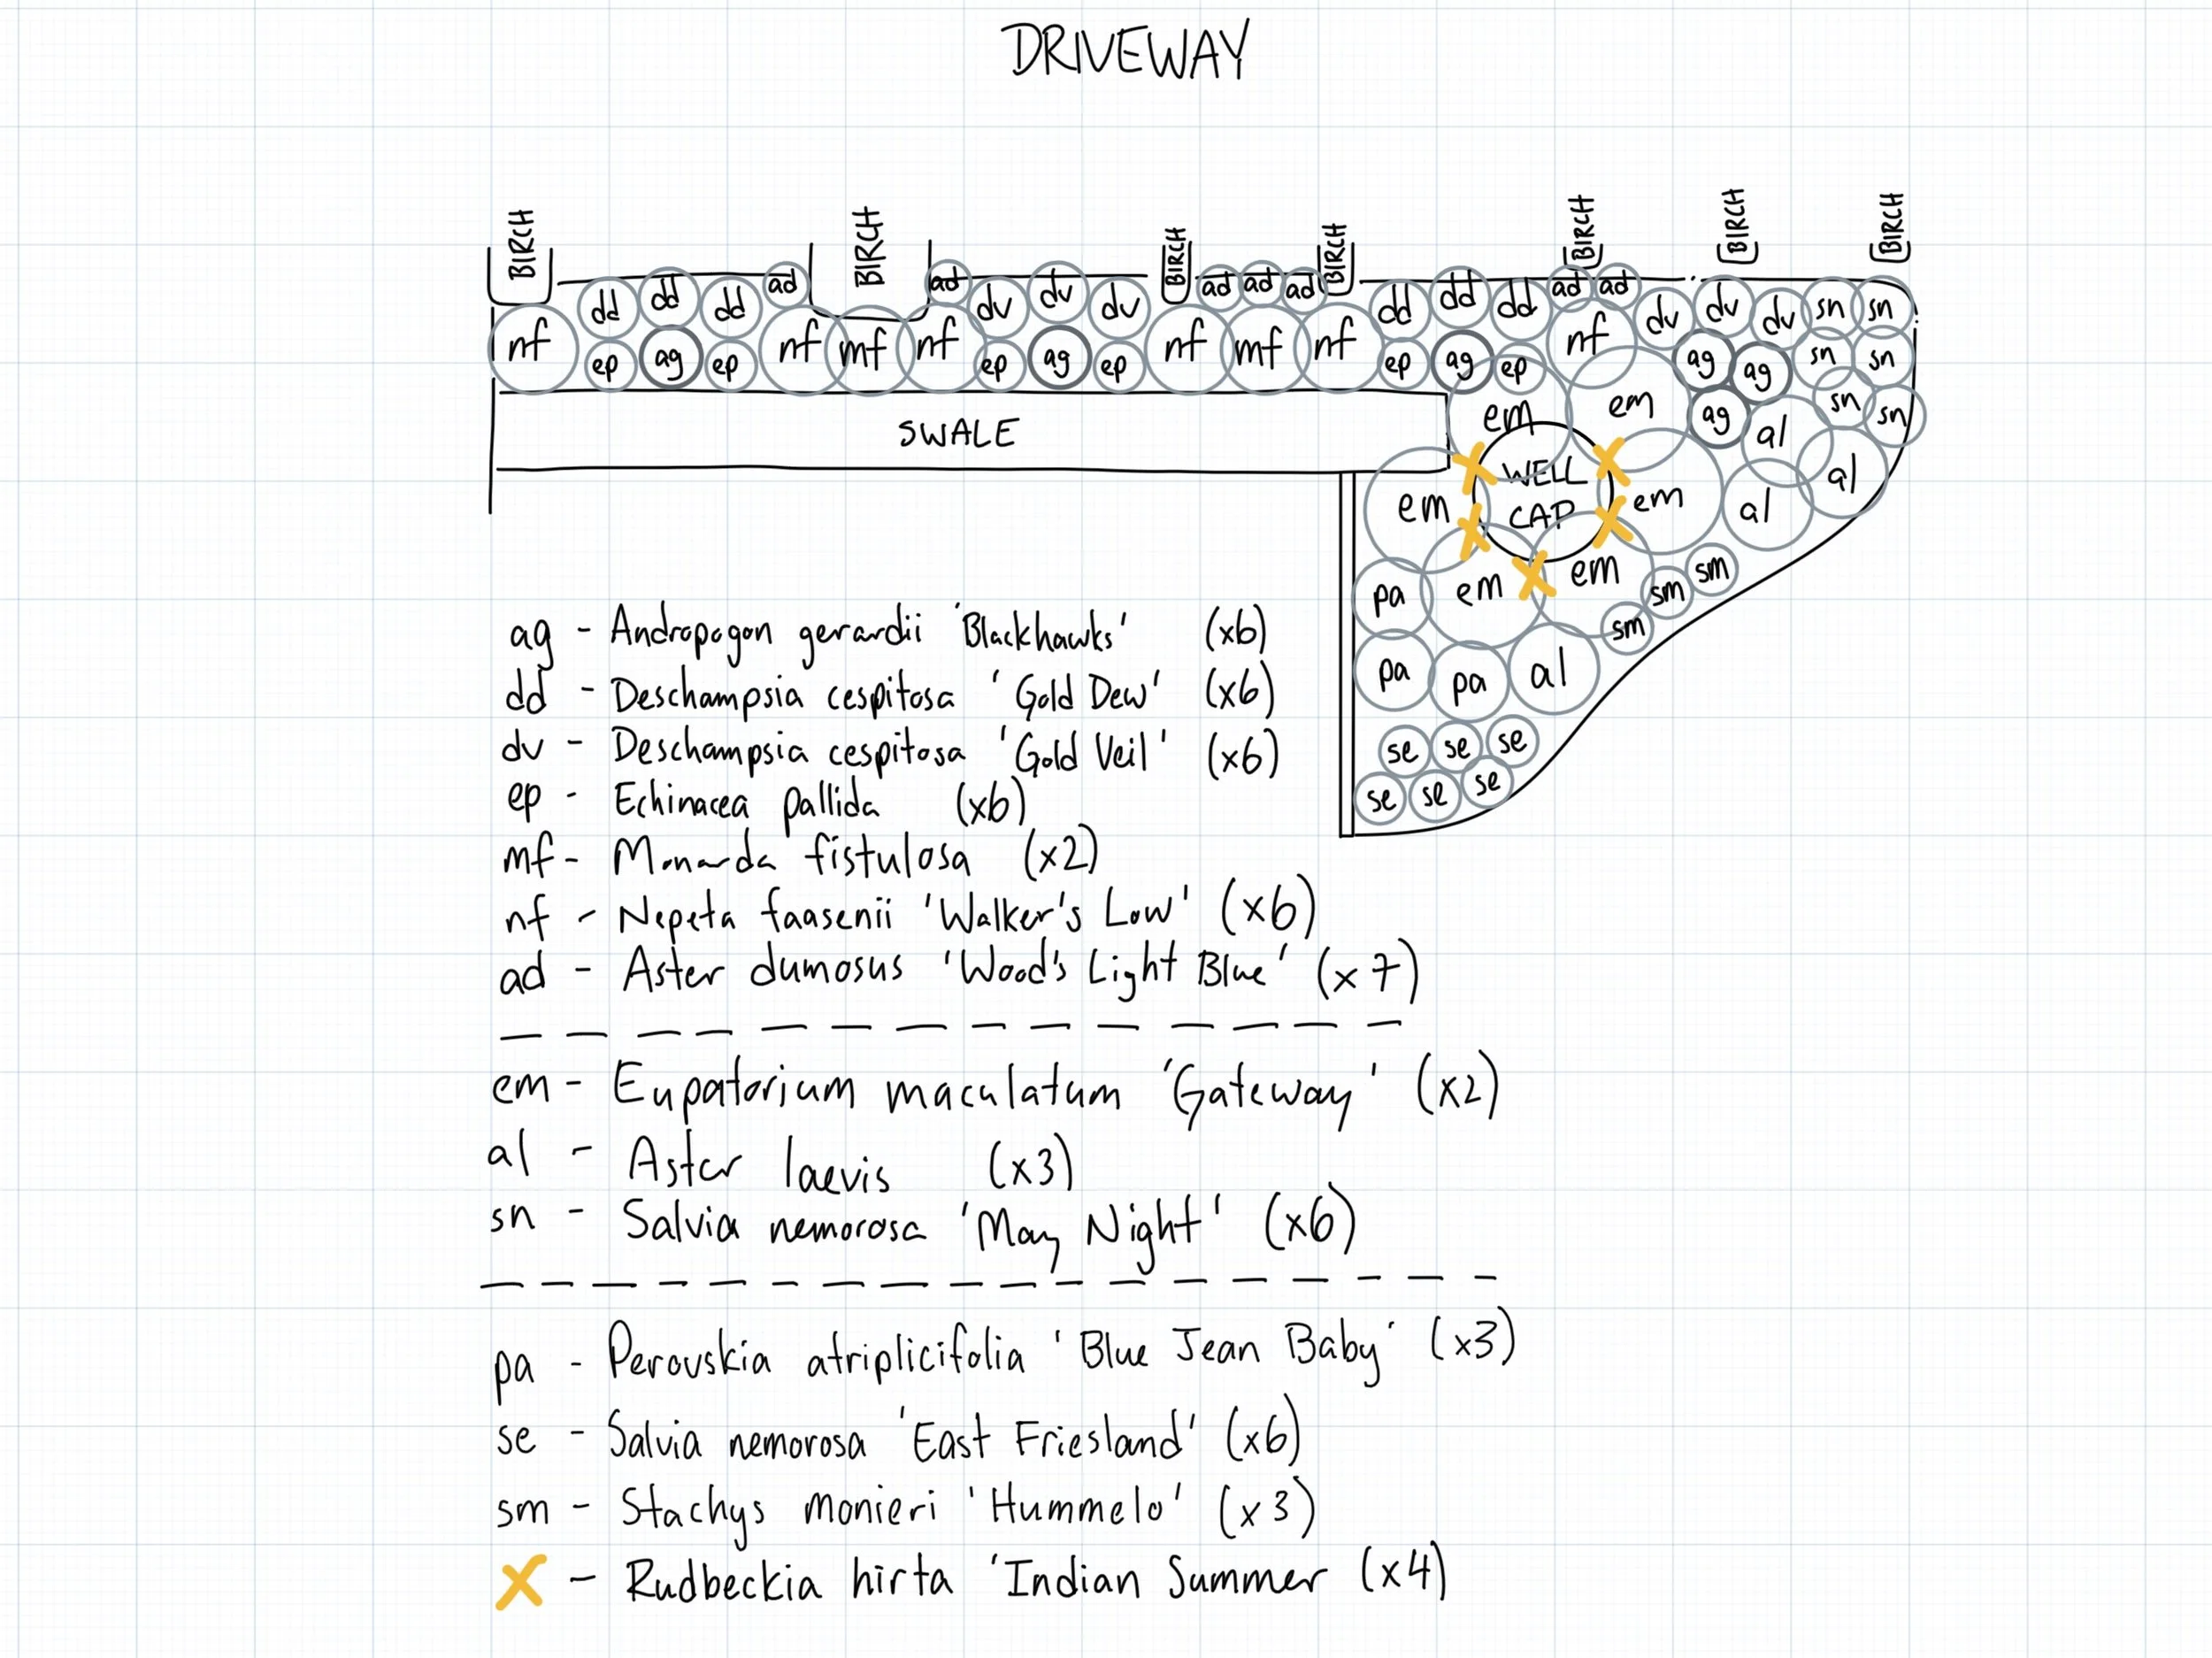 DRIVEWAY
BIRCH BIRCH BIRCH BIRCH BIRCH BIRCH BIRCH
ad ad ad ad ad ad ad
dd dd dd dv dv dv dd dd dd dv dv dv sn sn
nf nf mf nf nf mf nf nf
ep ag ep ep ag ep ep ag ep ag ag sn sn
em em ag al sn sn
SWALE
em WELL CAP em al al
pa em em sm sm
sm
pa pa al
se se se
se se se
ag - Andropogon gerardii 'Blackhawks' (x6)
dd - Deschampsia cespitosa 'Gold Dew' (x6)
dv - Deschampsia cespitosa 'Gold Veil' (x6)
ep - Echinacea pallida (x6)
mf - Monarda fistulosa (x2)
nf - Nepeta faasenii 'Walker's Low' (x6)
ad - Aster dumosus 'Wood's Light Blue' (x7)
em - Eupatorium maculatum 'Gateway' (x2)
al - Aster laevis (x3)
sn - Salvia nemorosa 'May Night' (x6)
pa - Perovskia atriplicifolia 'Blue Jean Baby' (x3)
se - Salvia nemorosa 'East Friesland' (x6)
sm - Stachys monieri 'Hummelo' (x3)
X - Rudbeckia hirta 'Indian Summer (x4)